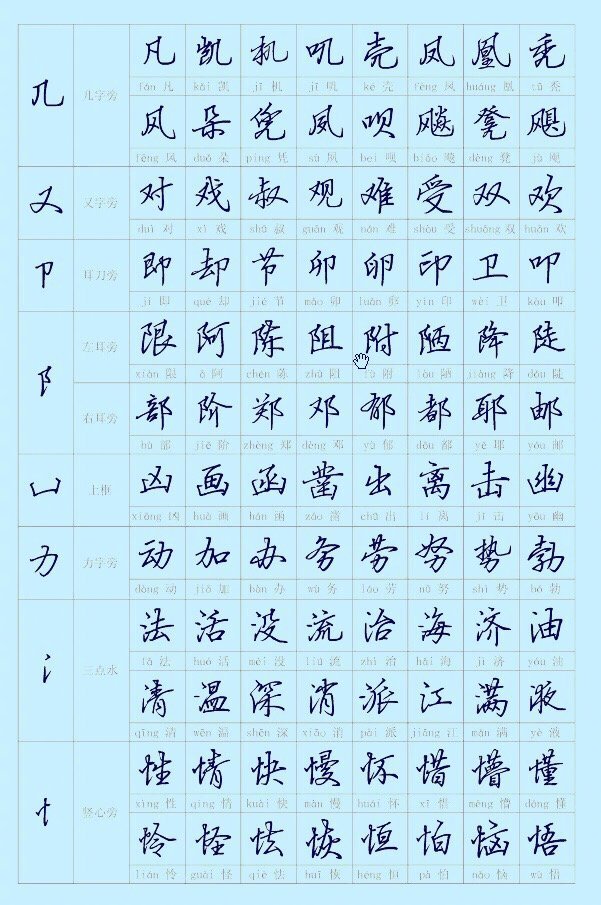 几 几字旁
凡 凯 机 叽 壳 凤 凰 秃
fán 凡 kǎi 凯 jī 机 jī 叽 ké 壳 fèng 凤 huáng 凰 tū 秃
风 朵 凭 夙 呗 飚 凳 飓
fēng 风 duǒ 朵 píng 凭 sù 夙 bei 呗 biāo 飚 dèng 凳 jù 飓
又 又字旁 对 戏 叔 观 难 受 双 欢
duì 对 xì 戏 shū 叔 guān 观 nán 难 shòu 受 shuāng 双 huān 欢
卩 耳刀旁 即 却 节 卯 卵 印 卫 叩
jí 即 què 却 jié 节 mǎo 卯 luǎn 卵 yìn 印 wèi 卫 kòu 叩
阝 左耳旁 限 阿 陈 阻 附 陋 降 陡
xiàn 限 ā 阿 chén 陈 zǔ 阻 fù 附 lòu 陋 jiàng 降 dǒu 陡
右耳旁 部 阶 郑 邓 郁 都 耶 邮
bù 部 jiē 阶 zhèng 郑 dèng 邓 yù 郁 dōu 都 yē 耶 yóu 邮
凵 上框 凶 画 函 凿 出 离 击 幽
xiōng 凶 huà 画 hán 函 záo 凿 chū 出 lí 离 jī 击 yōu 幽
力 力字旁 动 加 办 务 劳 努 势 勃
dòng 动 jiā 加 bàn 办 wù 务 láo 劳 nǔ 努 shì 势 bó 勃
氵 三点水
法 活 没 流 治 海 济 油
fǎ 法 huó 活 méi 没 liú 流 zhì 治 hǎi 海 jì 济 yóu 油
清 温 深 消 派 江 满 液
qīng 清 wēn 温 shēn 深 xiāo 消 pài 派 jiāng 江 mǎn 满 yè 液
忄 竖心旁
性 情 快 慢 怀 惜 懵 懂
xìng 性 qíng 情 kuài 快 màn 慢 huái 怀 xī 惜 měng 懵 dǒng 懂
怜 怪 怯 恢 恒 怕 恼 悟
lián 怜 guài 怪 qiè 怯 huī 恢 héng 恒 pà 怕 nǎo 恼 wù 悟